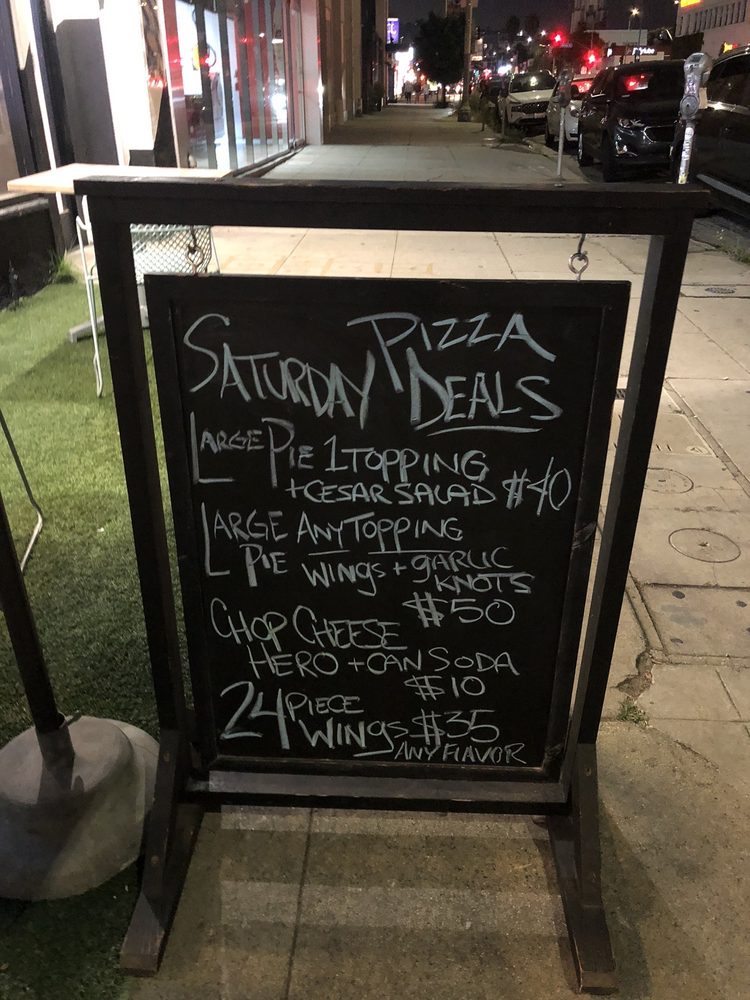 SATURDAY PIZZA DEALS
LARGE PIE 1 TOPPING
+ CESAR SALAD $40
LARGE ANY TOPPING
PIE WINGS + GARLIC
KNOTS
$50
CHOP CHEESE
HERO + CAN SODA
$10
24 PIECE
WINGS $35
ANY FLAVOR